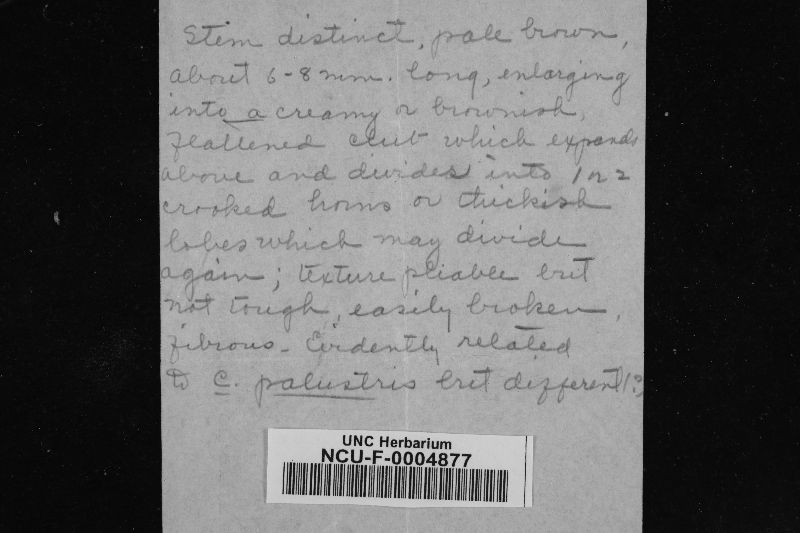 Stem distinct, pale brown,
about 6-8 mm. long, enlarging
into a creamy or brownish,
flattened club which expands
above and divides into 1 or 2
crooked horns or thickish
lobes which may divide
again; texture pliable but
not tough, easily broken,
fibrous - Evidently related
to C. palustris but different (?)
UNC Herbarium
NCU-F-0004877